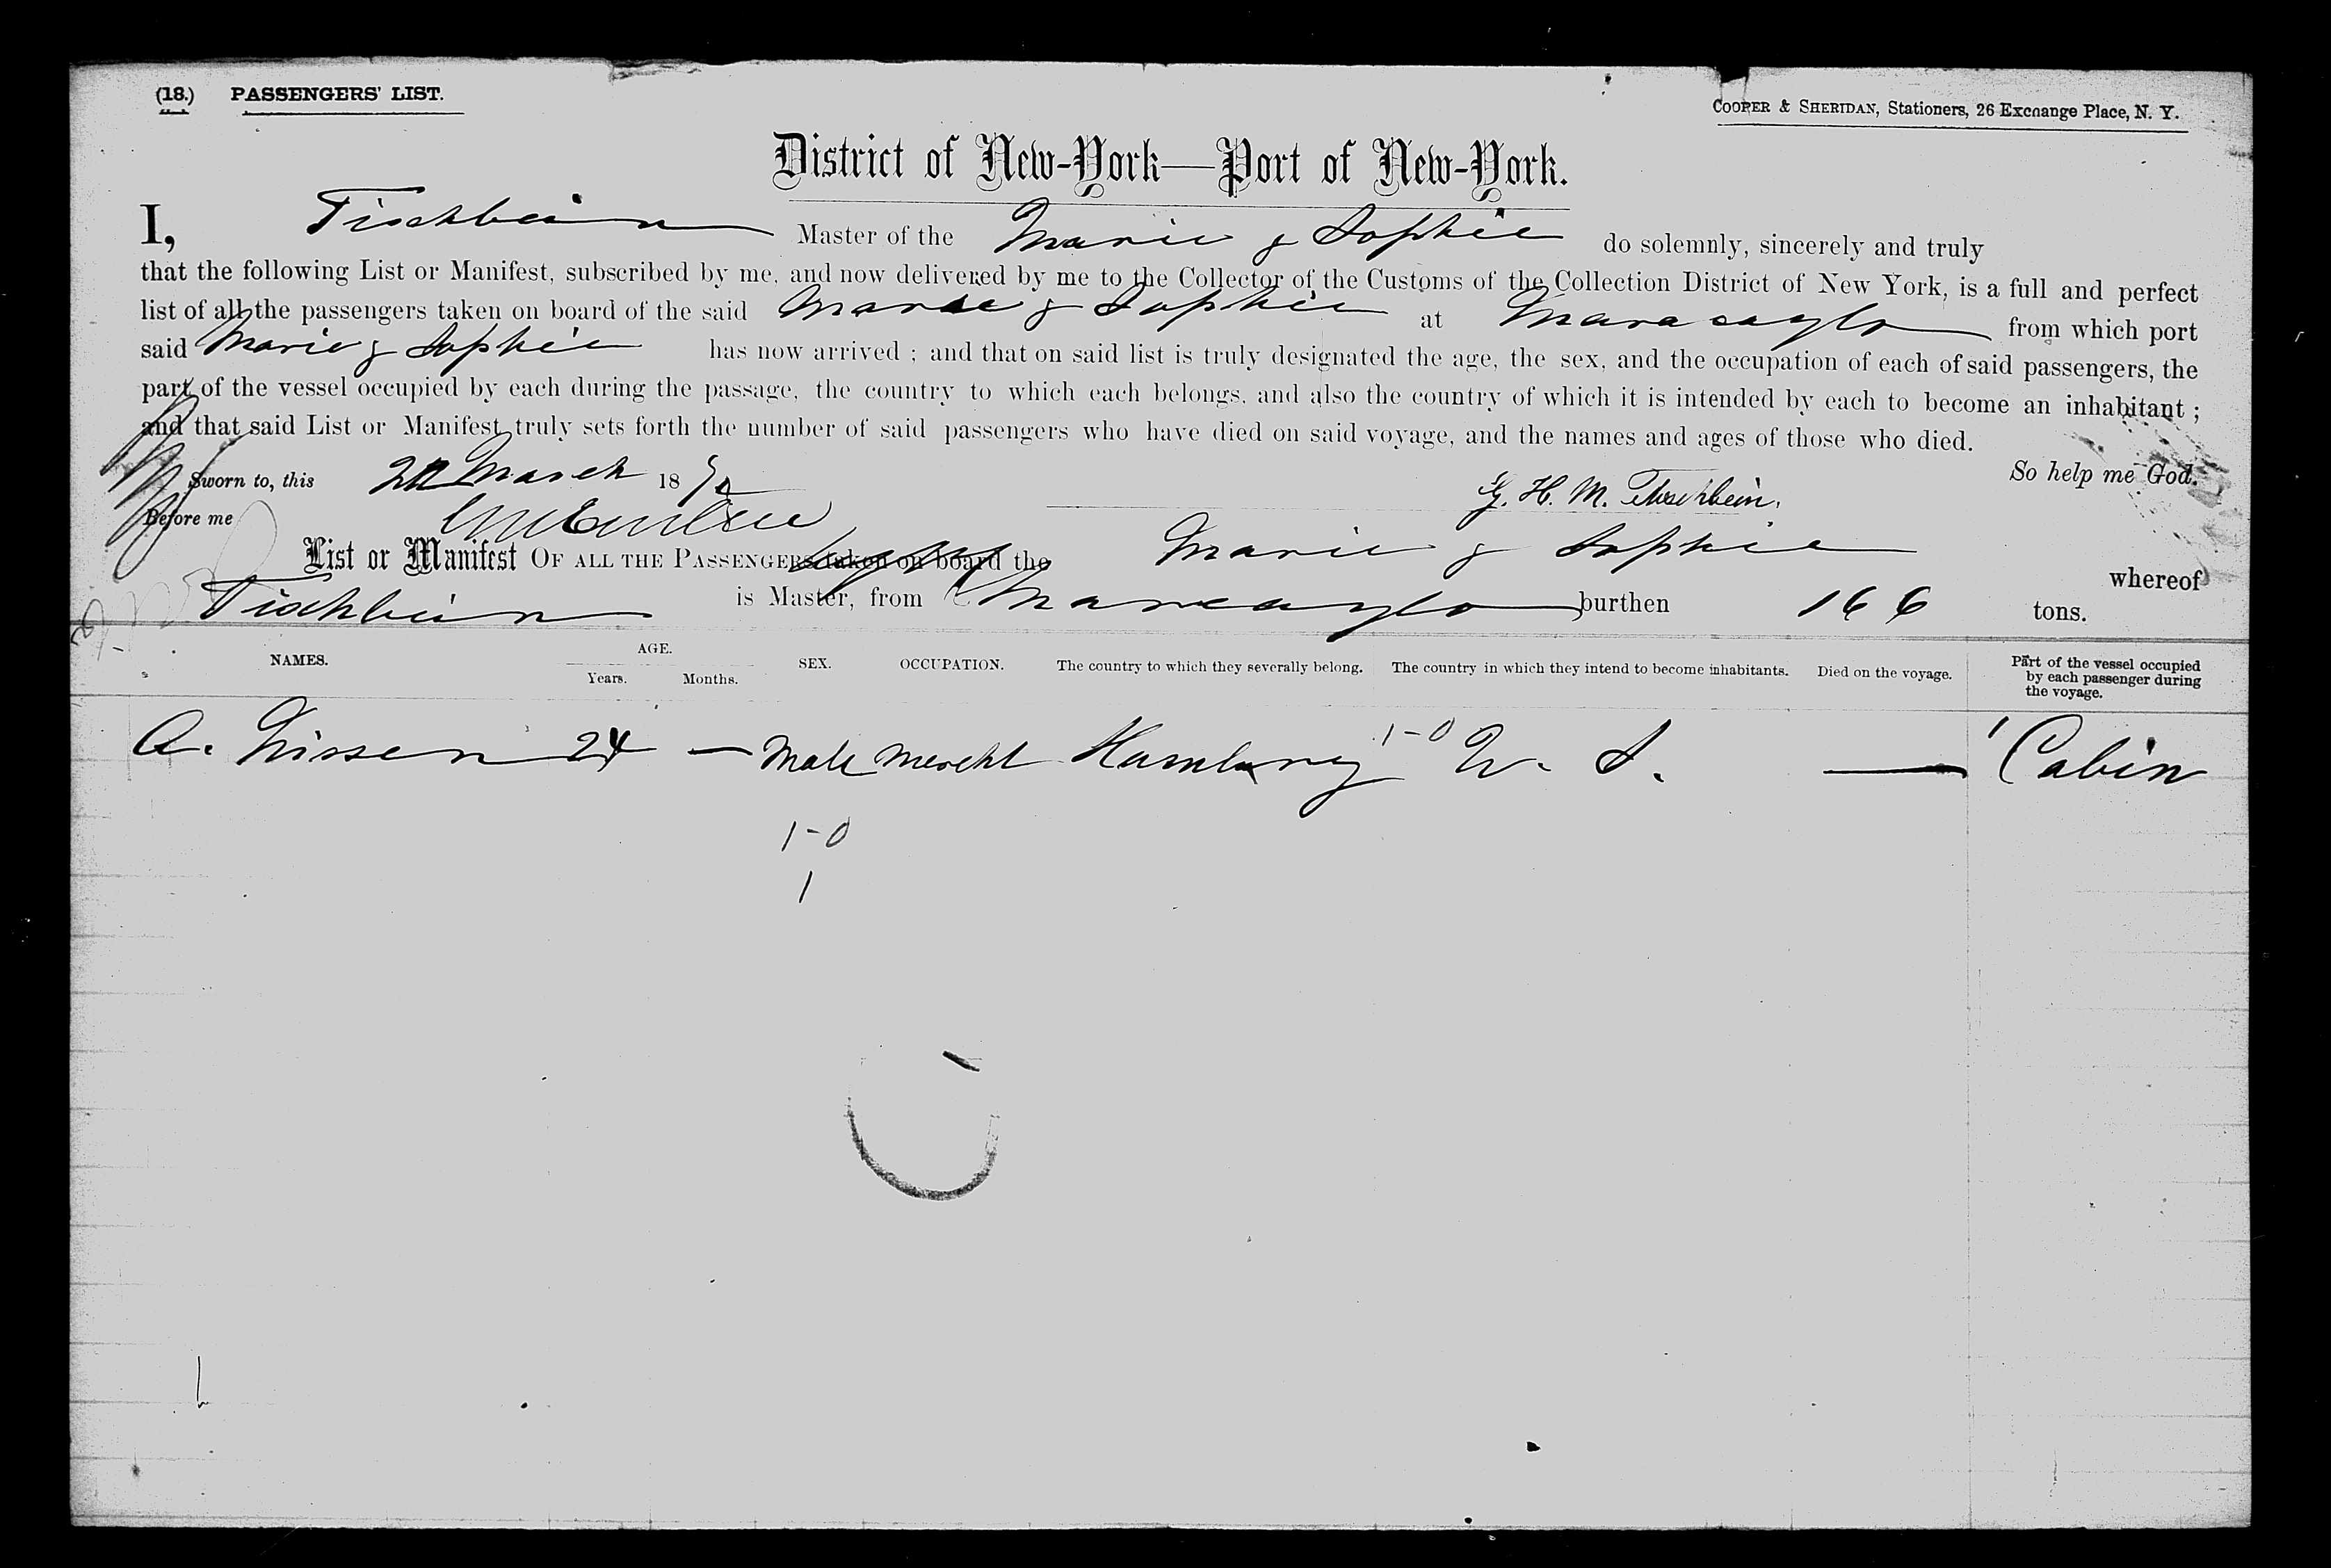 (18.) PASSENGERS' LIST.
COOPER & SHERIDAN, Stationers, 26 Exchange Place, N. Y.
District of New-York—Port of New-York.
I, Tischbein Master of the Marie & Sophie do solemnly, sincerely and truly
that the following List or Manifest, subscribed by me, and now delivered by me to the Collector of the Customs of the Collection District of New York, is a full and perfect
list of all the passengers taken on board of the said Marie & Sophie at Maracaybo from which port
said Marie & Sophie has now arrived ; and that on said list is truly designated the age, the sex, and the occupation of each of said passengers, the
part of the vessel occupied by each during the passage, the country to which each belongs, and also the country of which it is intended by each to become an inhabitant ;
and that said List or Manifest truly sets forth the number of said passengers who have died on said voyage, and the names and ages of those who died.
So help me God.
Sworn to, this March 18
G. H. M. Tischbein.
Before me
List or Manifest OF ALL THE PASSENGERS taken on board the Marie & Sophie whereof
Tischbein is Master, from Maracaybo burthen 166 tons.
NAMES. AGE. Years. Months. SEX. OCCUPATION. The country to which they severally belong. The country in which they intend to become inhabitants. Died on the voyage. Part of the vessel occupied by each passenger during the voyage.
A. Nissen 24 — Male Mercht Hamburg 1-0 — Cabin
1-0
1